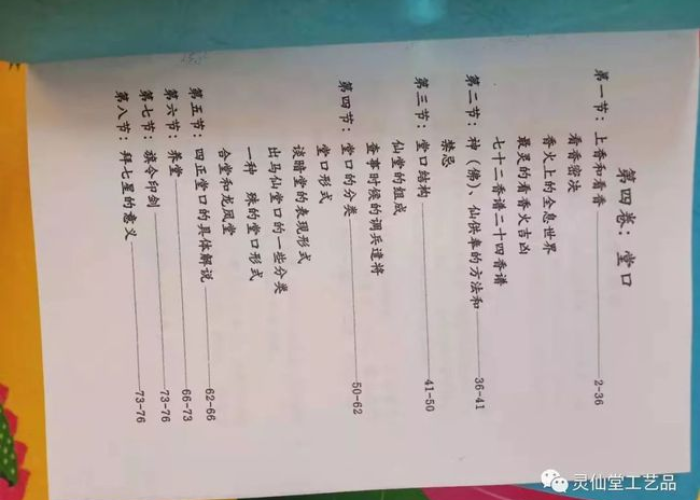 第四卷：堂口
第一节：上香和看香————2-36
看香密决
香火上的全息世界
最灵的看香火吉凶
七十二香谱二十四香谱
第二节：神（佛）、仙供奉的方法和
禁忌————36-41
第三节：堂口结构————41-50
仙堂的组成
查事时候的调兵遣将
第四节：堂口的分类————50-62
堂口形式
谈暗堂的表现形式
出马仙堂口的一些分类
一种 殊的堂口形式
合堂和龙凤堂
第五节：四正堂口的具体解说————62-66
第六节：养堂————66-73
第七节：旗令印剑————73-76
第八节：拜七星的意义————73-76
灵仙堂工艺品